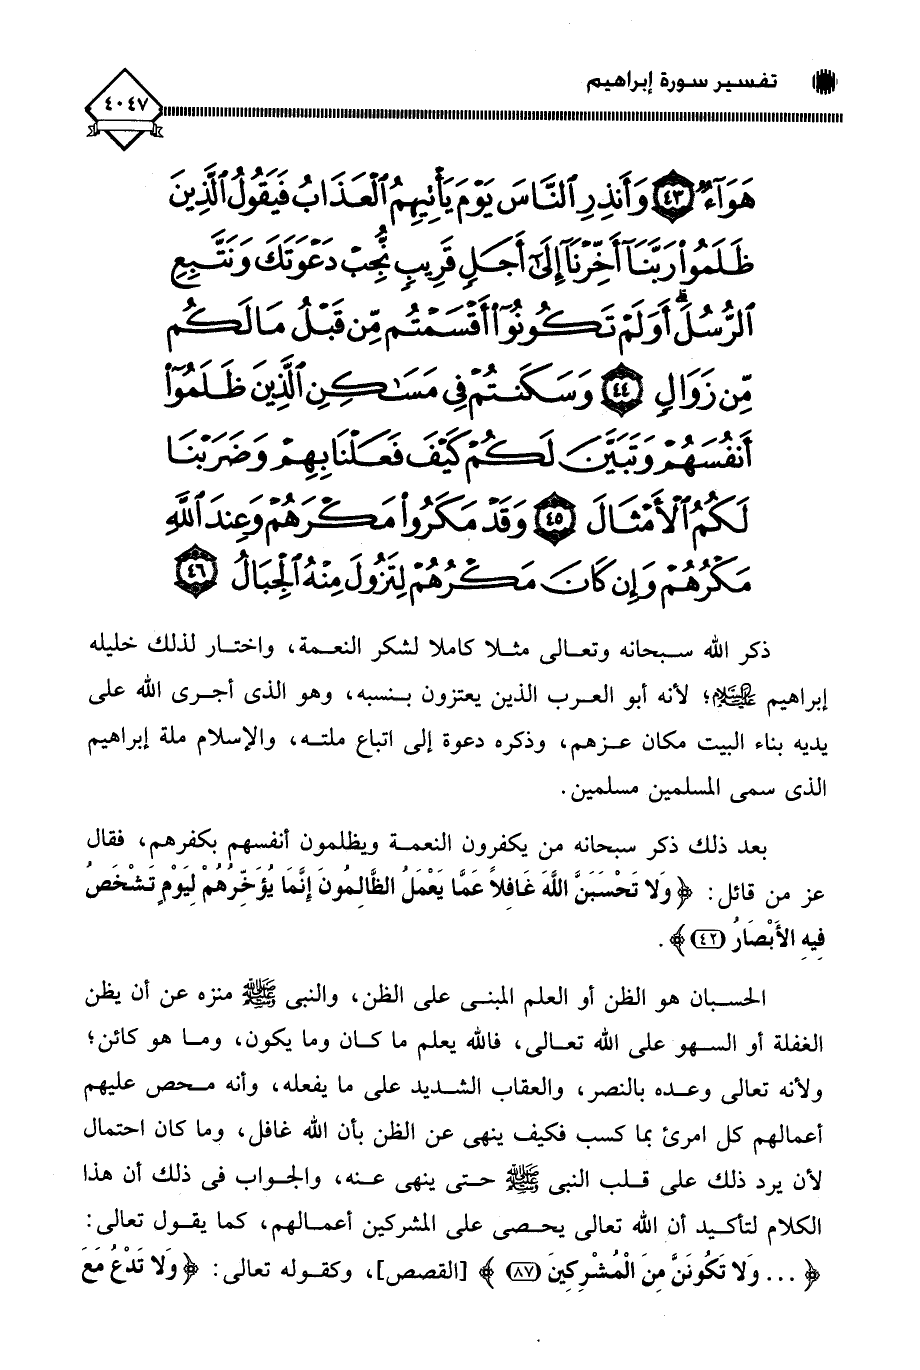 تفسير سورة إبراهيم
٤٠٤٧
هَوَآءٌ ٤٣ وَأَنذِرِ ٱلنَّاسَ يَوْمَ يَأْتِيهِمُ ٱلْعَذَابُ فَيَقُولُ ٱلَّذِينَ
ظَلَمُوا۟ رَبَّنَآ أَخِّرْنَآ إِلَىٰٓ أَجَلٍ قَرِيبٍ نُّجِبْ دَعْوَتَكَ وَنَتَّبِعِ
ٱلرُّسُلَ ۗ أَوَلَمْ تَكُونُوٓا۟ أَقْسَمْتُم مِّن قَبْلُ مَا لَكُم
مِّن زَوَالٍ ٤٤ وَسَكَنتُمْ فِى مَسَٰكِنِ ٱلَّذِينَ ظَلَمُوٓا۟
أَنفُسَهُمْ وَتَبَيَّنَ لَكُمْ كَيْفَ فَعَلْنَا بِهِمْ وَضَرَبْنَا
لَكُمُ ٱلْأَمْثَالَ ٤٥ وَقَدْ مَكَرُوا۟ مَكْرَهُمْ وَعِندَ ٱللَّهِ
مَكْرُهُمْ وَإِن كَانَ مَكْرُهُمْ لِتَزُولَ مِنْهُ ٱلْجِبَالُ ٤٦
ذكر الله سبحانه وتعالى مثلا كاملا لشكر النعمة، واختار لذلك خليله
إبراهيم عليه السلام؛ لأنه أبو العرب الذين يعتزون بنسبه، وهو الذى أجرى الله على
يديه بناء البيت مكان عزهم، وذكره دعوة إلى اتباع ملته، والإسلام ملة إبراهيم
الذى سمى المسلمين مسلمين.
بعد ذلك ذكر سبحانه من يكفرون النعمة ويظلمون أنفسهم بكفرهم، فقال
عز من قائل: ﴿وَلا تَحْسَبَنَّ اللَّهَ غَافِلاً عَمَّا يَعْمَلُ الظَّالِمُونَ إِنَّمَا يُؤَخِّرُهُمْ لِيَوْمٍ تَشْخَصُ
فِيهِ الأَبْصَارُ (٤٢)﴾.
الحسبان هو الظن أو العلم المبنى على الظن، والنبى ﷺ منزه عن أن يظن
الغفلة أو السهو على الله تعالى، فالله يعلم ما كان وما يكون، وما هو كائن؛
ولأنه تعالى وعده بالنصر، والعقاب الشديد على ما يفعله، وأنه محص عليهم
أعمالهم كل امرئ بما كسب فكيف ينهى عن الظن بأن الله غافل، وما كان احتمال
لأن يرد ذلك على قلب النبى ﷺ حتى ينهى عنه، والجواب فى ذلك أن هذا
الكلام لتأكيد أن الله تعالى يحصى على المشركين أعمالهم، كما يقول تعالى:
﴿ ... وَلا تَكُونَنَّ مِنَ الْمُشْرِكِينَ (٨٧) ﴾ [القصص]، وكقوله تعالى: ﴿وَلا تَدْعُ مَعَ